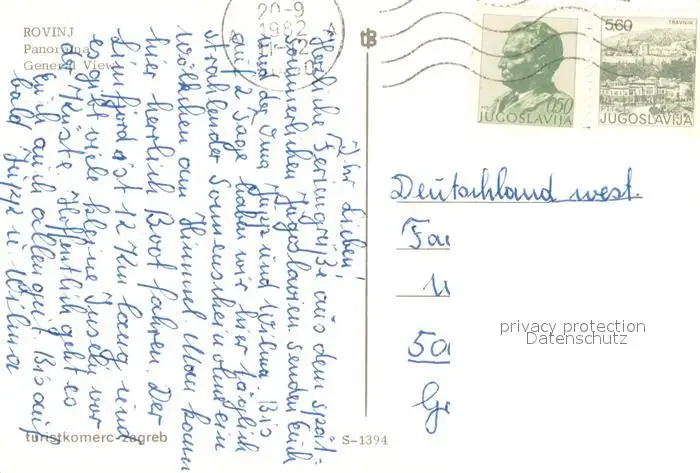 ROVINJ
Panorama
General View
20-9
1982
JUGOSLAVIJA
0,50
TRAVNIK
5,60
JUGOSLAVIJA
Ihr Lieben!
Herzliche Feriengrüße aus dem spät-
sommerlichen Jugoslavien senden Euch
und der Oma Jupp und Wilma. Bis
auf 2 Tage haben wir hier täglich
strahlender Sonnenschein ohne ein
wölkchen am Himmel. Man kann
hier herrlich Boot fahren. Der
Limfjord ist 12 km lang und
es gibt viele kleine Inseln vor
der Küste. Hoffentlich geht es
Euch auch allen gut. Bis auf
bald Jupp u. Wilma
Deutschland west.
Fa
50
privacy protection
Datenschutz
turistkomerc-zagreb
S-1394